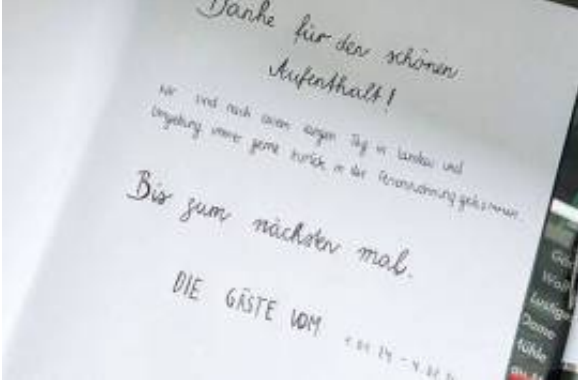 Danke für den schönen
Aufenthalt!
Wir sind nach einem langen Tag in Landau und
Umgebung immer gerne zurück in die Ferienwohnung gekommen.
Bis zum nächsten mal.
DIE GÄSTE VOM
Lustige
Dame
Mühle